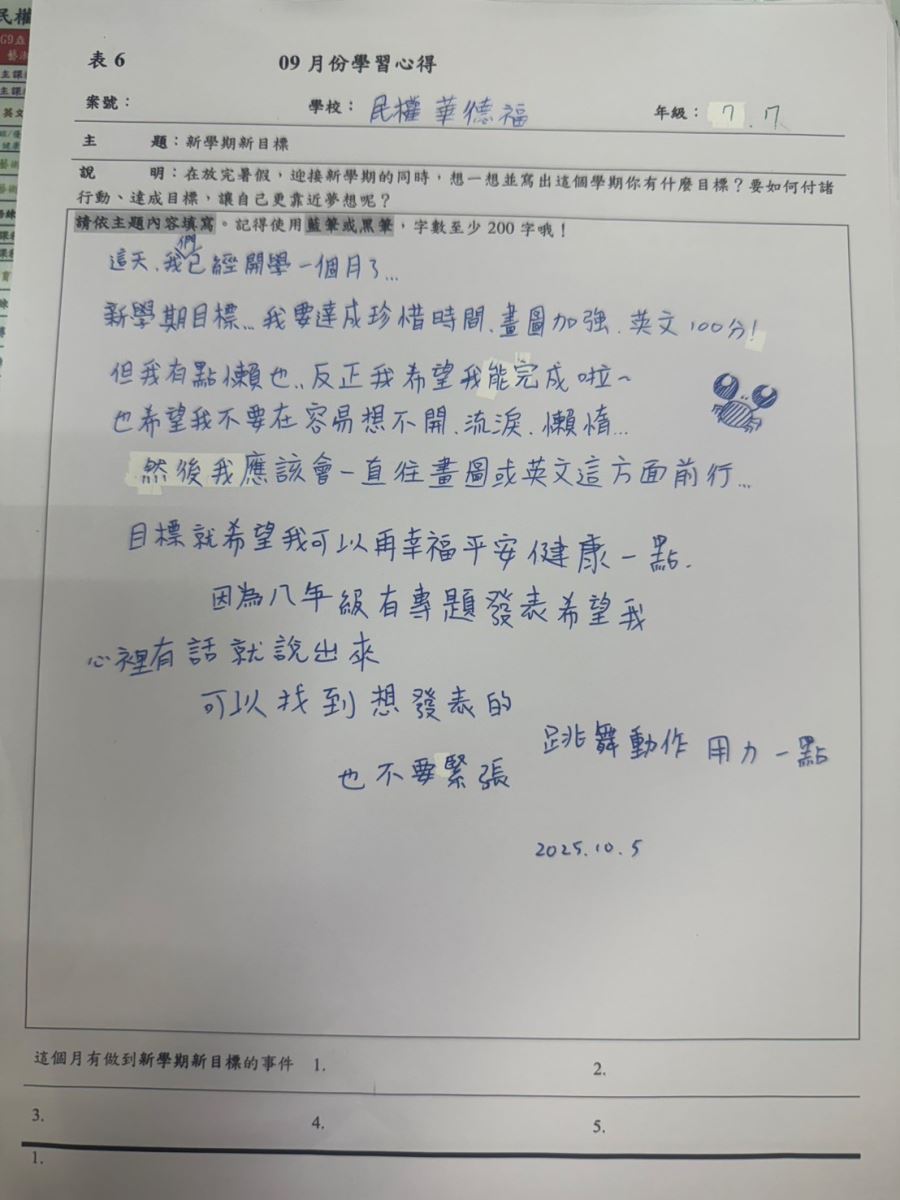 表 6 09 月份學習心得
案號： 學校： 民權 華德福 年級： 7.7
主 題：新學期新目標
說 明：在放完暑假，迎接新學期的同時，想一想並寫出這個學期你有什麼目標？要如何付諸
行動、達成目標，讓自己更靠近夢想呢？
請依主題內容填寫。記得使用藍筆或黑筆，字數至少 200 字哦！
這天、我們已經開學一個月了...
新學期目標...我要達成珍惜時間、畫圖加強、英文100分!
但我有點懶也..反正我希望我能完成啦~
也希望我不要在容易想不開、流淚、懶惰...
然後我應該會一直往畫圖或英文這方面前行...
目標就希望我可以再幸福平安健康一點.
因為八年級有專題發表希望我
心裡有話就說出來
可以找到想發表的
跳舞動作 用力一點
也不要緊張
2025.10.5
這個月有做到新學期新目標的事件 1. 2.
3. 4. 5.
1.
民權
G9
藝術
主課
主課
英文